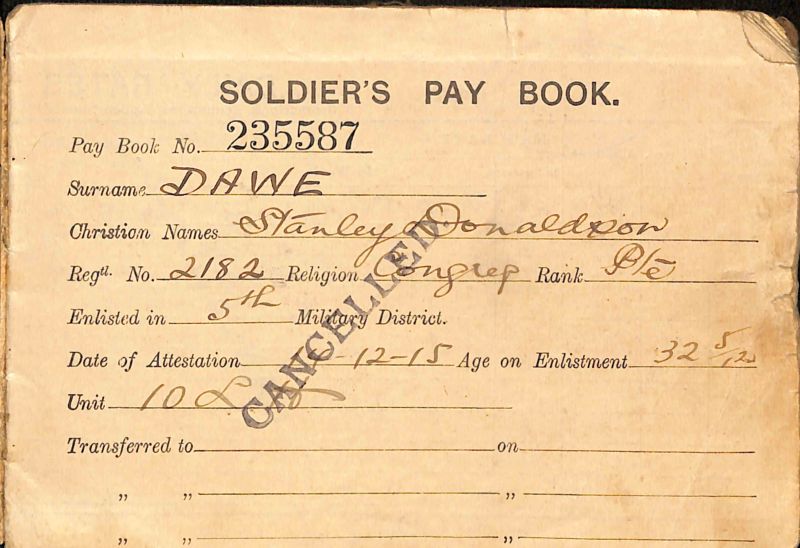 SOLDIER'S PAY BOOK.
Pay Book No. 235587
Surname DAWE
Christian Names Stanley Donaldson
Regtl. No. 2182 Religion Congreg Rank Pte
Enlisted in 5th Military District.
Date of Attestation -12-15 Age on Enlistment 32 5/12
Unit 10 L
CANCELLED.
Transferred to on
„ „ „
„ „ „